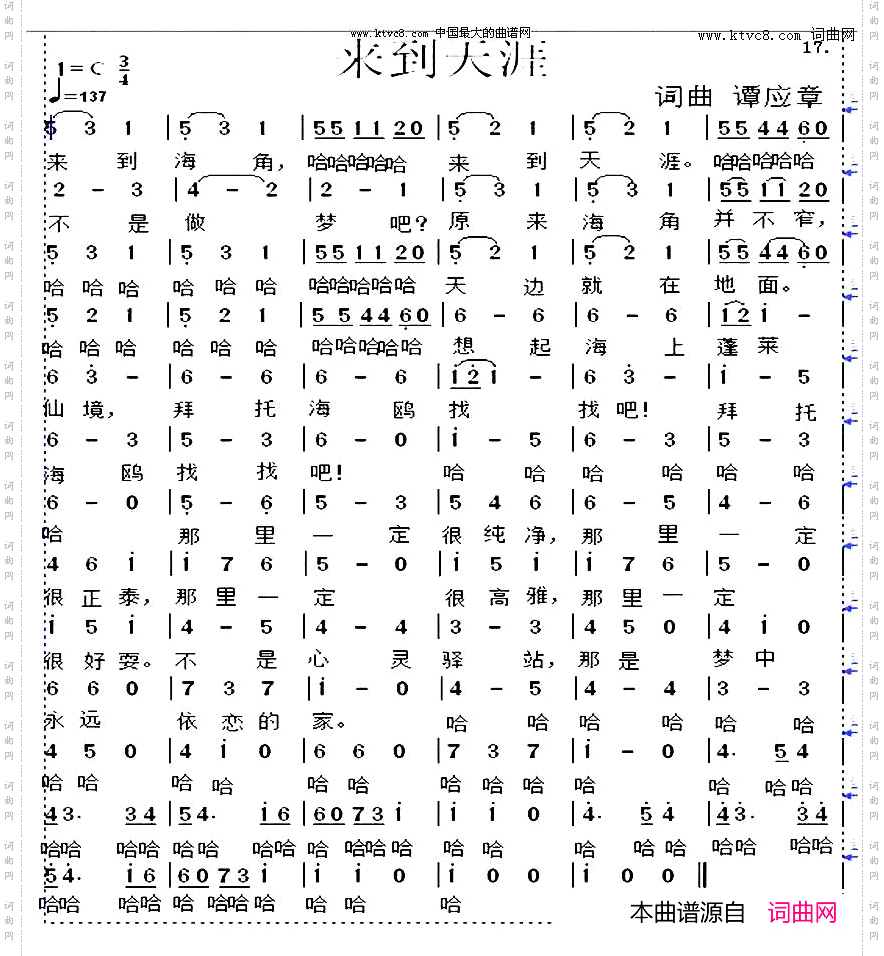 www.ktvc8.com 中国最大的曲谱网
www.ktvc8.com 词曲网
来到天涯
17.
1=C 3/4
♩=137
词曲 谭应章
5 3 1 |5 3 1 |55 11 20 |5 2 1 |5 2 1 |55 44 60
来 到 海 角,哈哈哈哈哈 来 到 天 涯。哈哈哈哈哈
2 - 3 |4 - 2 |2 - 1 |5 3 1 |5 3 1 |55 11 20
不 是 做 梦 吧?原 来 海 角 并 不 窄,
5 3 1 |5 3 1 |55 11 20 |5 2 1 |5 2 1 |55 44 60
哈 哈 哈 哈 哈 哈 哈哈哈哈哈 天 边 就 在 地 面。
5 2 1 |5 2 1 |55 44 60 |6 - 6 |6 - 6 |12 i -
哈 哈 哈 哈 哈 哈 哈哈哈哈哈 想 起 海 上 蓬 莱
6 3 - |6 - 6 |6 - 6 |121 - |6 3 - |i - 5
仙 境,拜 托 海 鸥 找 找 吧!拜 托
6 - 3 |5 - 3 |6 - 0 |i - 5 |6 - 3 |5 - 3
海 鸥 找 找 吧! 哈 哈 哈 哈 哈 哈
6 - 0 |5 - 6 |5 - 3 |5 4 6 |6 - 5 |4 - 6
哈 那 里 一 定 很 纯 净,那 里 一 定
4 6 i |i 7 6 |5 - 0 |i 5 i |i 7 6 |5 - 0
很 正 泰,那 里 一 定 很 高 雅,那 里 一 定
i 5 i |4 - 5 |4 - 4 |3 - 3 |4 5 0 |4 i 0
很 好 耍。不 是 心 灵 驿 站,那 是 梦 中
6 6 0 |7 3 7 |i - 0 |4 - 5 |4 - 4 |3 - 3
永 远 依 恋 的 家。 哈 哈 哈 哈 哈 哈
4 5 0 |4 i 0 |6 6 0 |7 3 7 |i - 0 |4. 54
哈 哈 哈 哈 哈 哈 哈 哈 哈 哈 哈 哈哈
43. 34 |54. i6 |60 73 i |i i 0 |4. 54 |43. 34
哈哈 哈哈 哈哈 哈哈 哈 哈哈哈 哈 哈 哈 哈哈 哈哈 哈哈
54. i6 |60 73 i |i i 0 |i 0 0 |i 0 0 ‖
哈哈 哈哈 哈 哈哈 哈 哈 哈 哈
本曲谱源自 词曲网